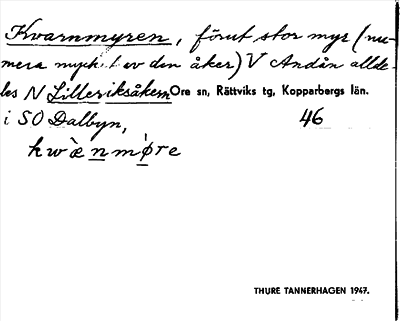 Kvarnmyren, förut stor myr (nu-
mera mycket av den åker) V Andån allde-
les N Lilleriksåkern Ore sn, Rättviks tg, Kopparbergs län.
i SO Dalbyn, 46
kwæ̀nmøre
THURE TANNERHAGEN 1947.